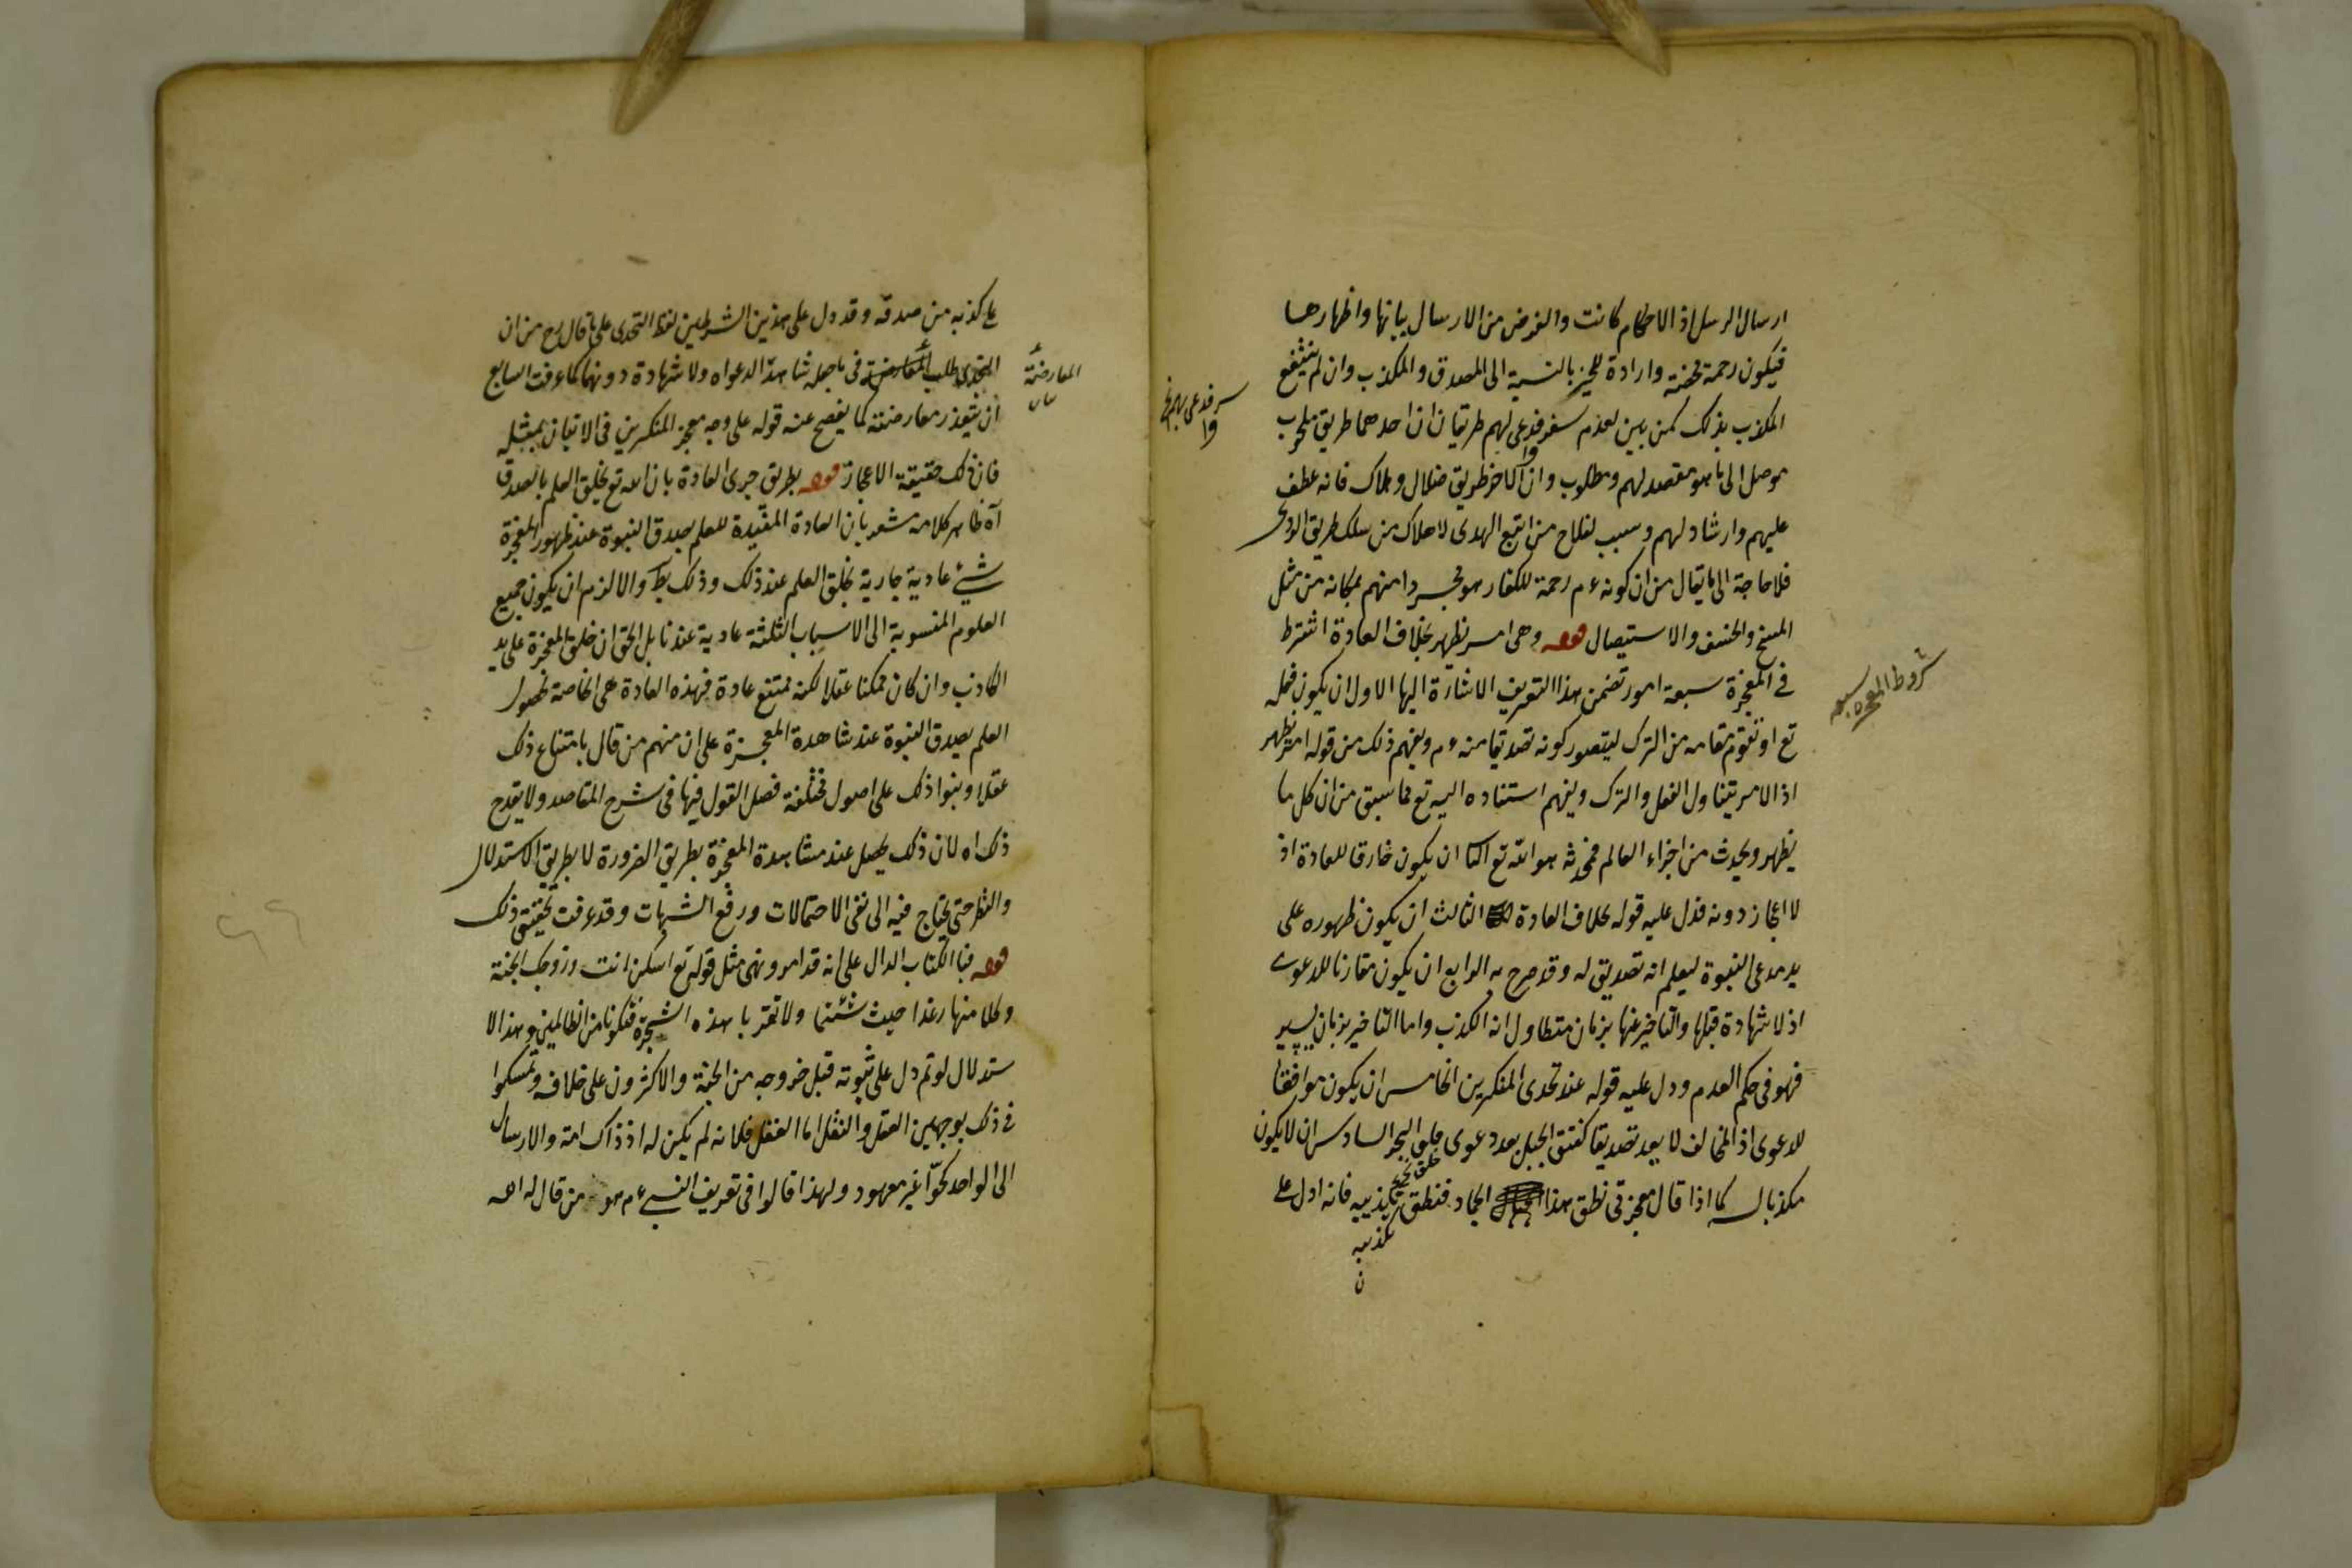 ارسال الرسل اذ الاحكام كانت والغرض من الارسال بيانها واظهارها
فيكون رحمة محضة وارادة للخير بالنسبة الى المصدق والمكذب وان لم ينتفع
المكذب بذلك كمن بين لقوم سفر فدعى لهم طريقان ان احدهما طريق
موصل الى ما هو مقصد لهم ومطلوب وان الآخر طريق ضلال وهلاك فانه عطف
عليهم وارشاد لهم وسبب لفلاح من اتبع الهدى لا هلاك من سلك طريق الردى
فلا حاجة الى ما يقال من ان كونه ءم رحمة للكفار هو مجرد امنهم بمكانه من مثل
المسخ والخسف والاستيصال قوله وهى امر يظهر بخلاف العادة اشترط
فى المعجزة سبعة امور تضمن هذا التعريف الاشارة اليها الاول ان يكون فعله
تع او يقوم مقامه من الترك ليتصور كونه تصديقا منه ءم ويفهم ذلك من قوله امر يظهر
اذ الامر يتناول الفعل والترك ويفهم استناده اليه تع مما سبق من ان كل ما
يظهر ويحدث من اجزاء العالم فمحدثه هو الله تع الثا ان يكون خارقا للعادة اذ
لا اعجاز دونه فدل عليه قوله بخلاف العادة الثالث ان يكون ظهوره على
يد مدعى النبوة ليعلم انه تصديق له وقد صرح به الرابع ان يكون مقارنا للدعوى
اذ لا شهادة قبلها والتأخير عنها بزمان متطاول انه الكذب واما التأخير بزمان يسير
فهو فى حكم العدم ودل عليه قوله عند تحدى المنكرين الخامس ان يكون موافقا
للدعوى اذ المخالف لا يعد تصديقا كفتق الجبل بعد دعوى فلق البحر السادس ان لا يكون
مكذبا له كما اذا قال معجزتى نطق هذا الجماد فنطق بتكذيبه فانه ادل على
تكذيبه
ن
شروط المعجزه سبعه
على كذبه من صدقه وقد دل على هذين الشرطين لفظ التحدى على ما قال رح من ان
التحدى طلب المعارضة فى ما جعله شاهدا لدعواه ولا شهادة دونهما كما عرفت السابع
ان يتعذر معارضته كما يفصح عنه قوله على وجه يعجز المنكرين فى الاتيان بمثله
فان ذلك حقيقة الاعجاز قوله بطريق جرى العادة بان الله تع يخلق العلم بالصدق
آه ظاهر كلامه مشعر بان العادة المفيدة للعلم بصدق النبوة عند ظهور المعجزة
شئ عادية جارية بخلق العلم عند ذلك وذلك بط والا لزم ان يكون جميع
العلوم المنسوبة الى الاسباب الثلثة عادية عندنا بل الحق ان خلق المعجزة على يد
الكاذب وان كان ممكنا عقلا لكنه ممتنع عادة فهذه العادة هى الخاصة لحصول
العلم بصدق النبوة عند مشاهدة المعجزة على ان منهم من قال بامتناع ذلك
عقلا وبنوا ذلك على اصول مختلفة فصل القول فيها فى شرح المقاصد ولا يقدح
ذلك اه لان ذلك يحصل عند مشاهدة المعجزة بطريق الضرورة لا بطريق الاستدلال
والنظر حتى يحتاج فيه الى نفى الاحتمالات ورفع الشبهات وقد عرفت تحقيق ذلك
قوله فبالكتاب الدال على انه قد امر ونهى مثل قوله تع اسكن انت وزوجك الجنة
وكلا منها رغدا حيث شئتما ولا تقربا هذه الشجرة فتكونا من الظالمين وهذا الا
ستدلال لو تم دل على ثبوته قبل خروجه من الجنة والاكثرون على خلافه وتمسكوا
فى ذلك بوجهين العقل والنقل اما العقل فلانه لم يكن له اذ ذاك امة والارسال
الى الواحد كحوّا غير معهود ولهذا قالوا فى تعريف النبى ءم هو من قال له الله
المعارضة